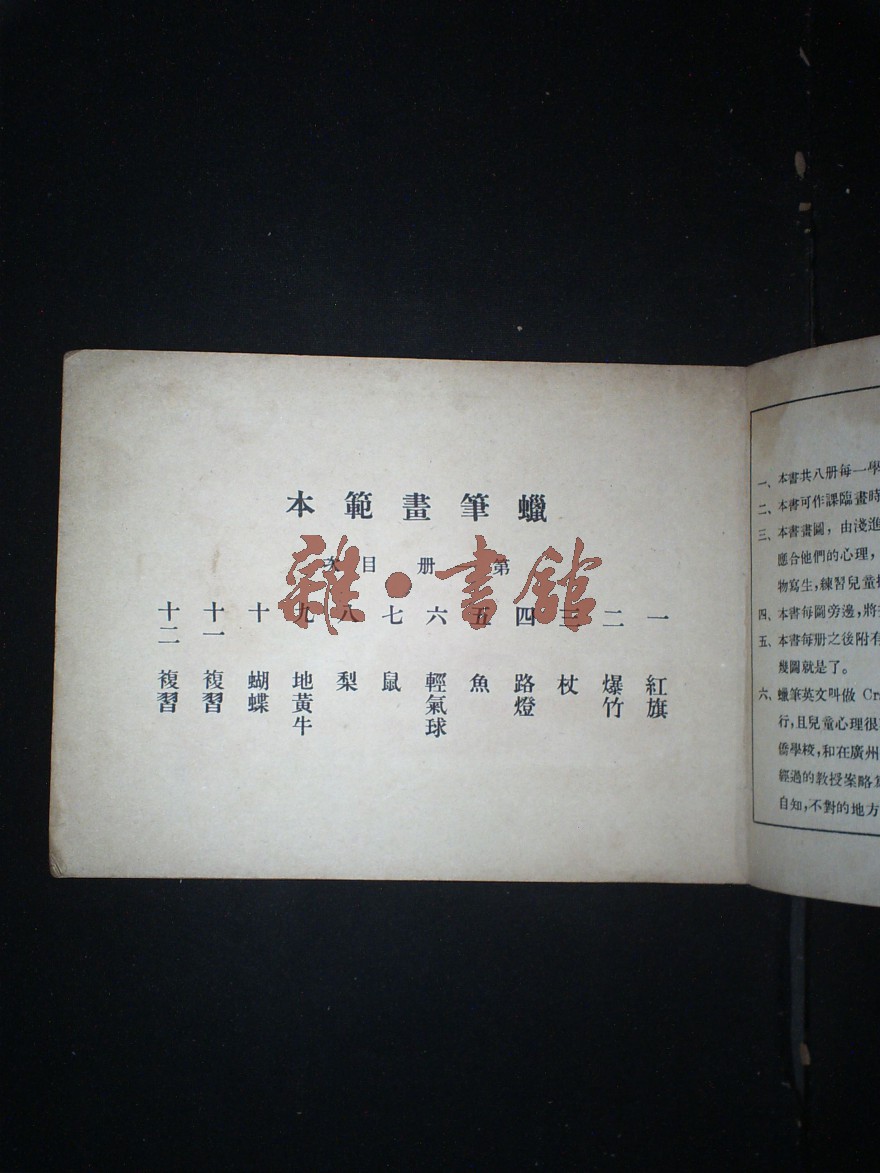 蠟筆畫範本
第 册目次
一 紅旗
二 爆竹
三 杖
四 路燈
五 魚
六 輕氣球
七 鼠
八 梨
九 地黃牛
十 蝴蝶
十一 複習
十二 複習
雜·書館
一、本書共八册每一學
二、本書可作課臨畫時
三、本書畫圖，由淺進
應合他們的心理，
物寫生，練習兒童
四、本書每圖旁邊，將
五、本書每册之後附有
幾圖就是了。
六、蠟筆英文叫做 Cr
行，且兒童心理很
僑學校，和在廣州
經過的教授案略
自知，不對的地方